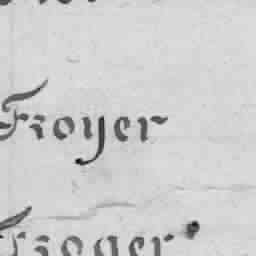 Froyer
Froger